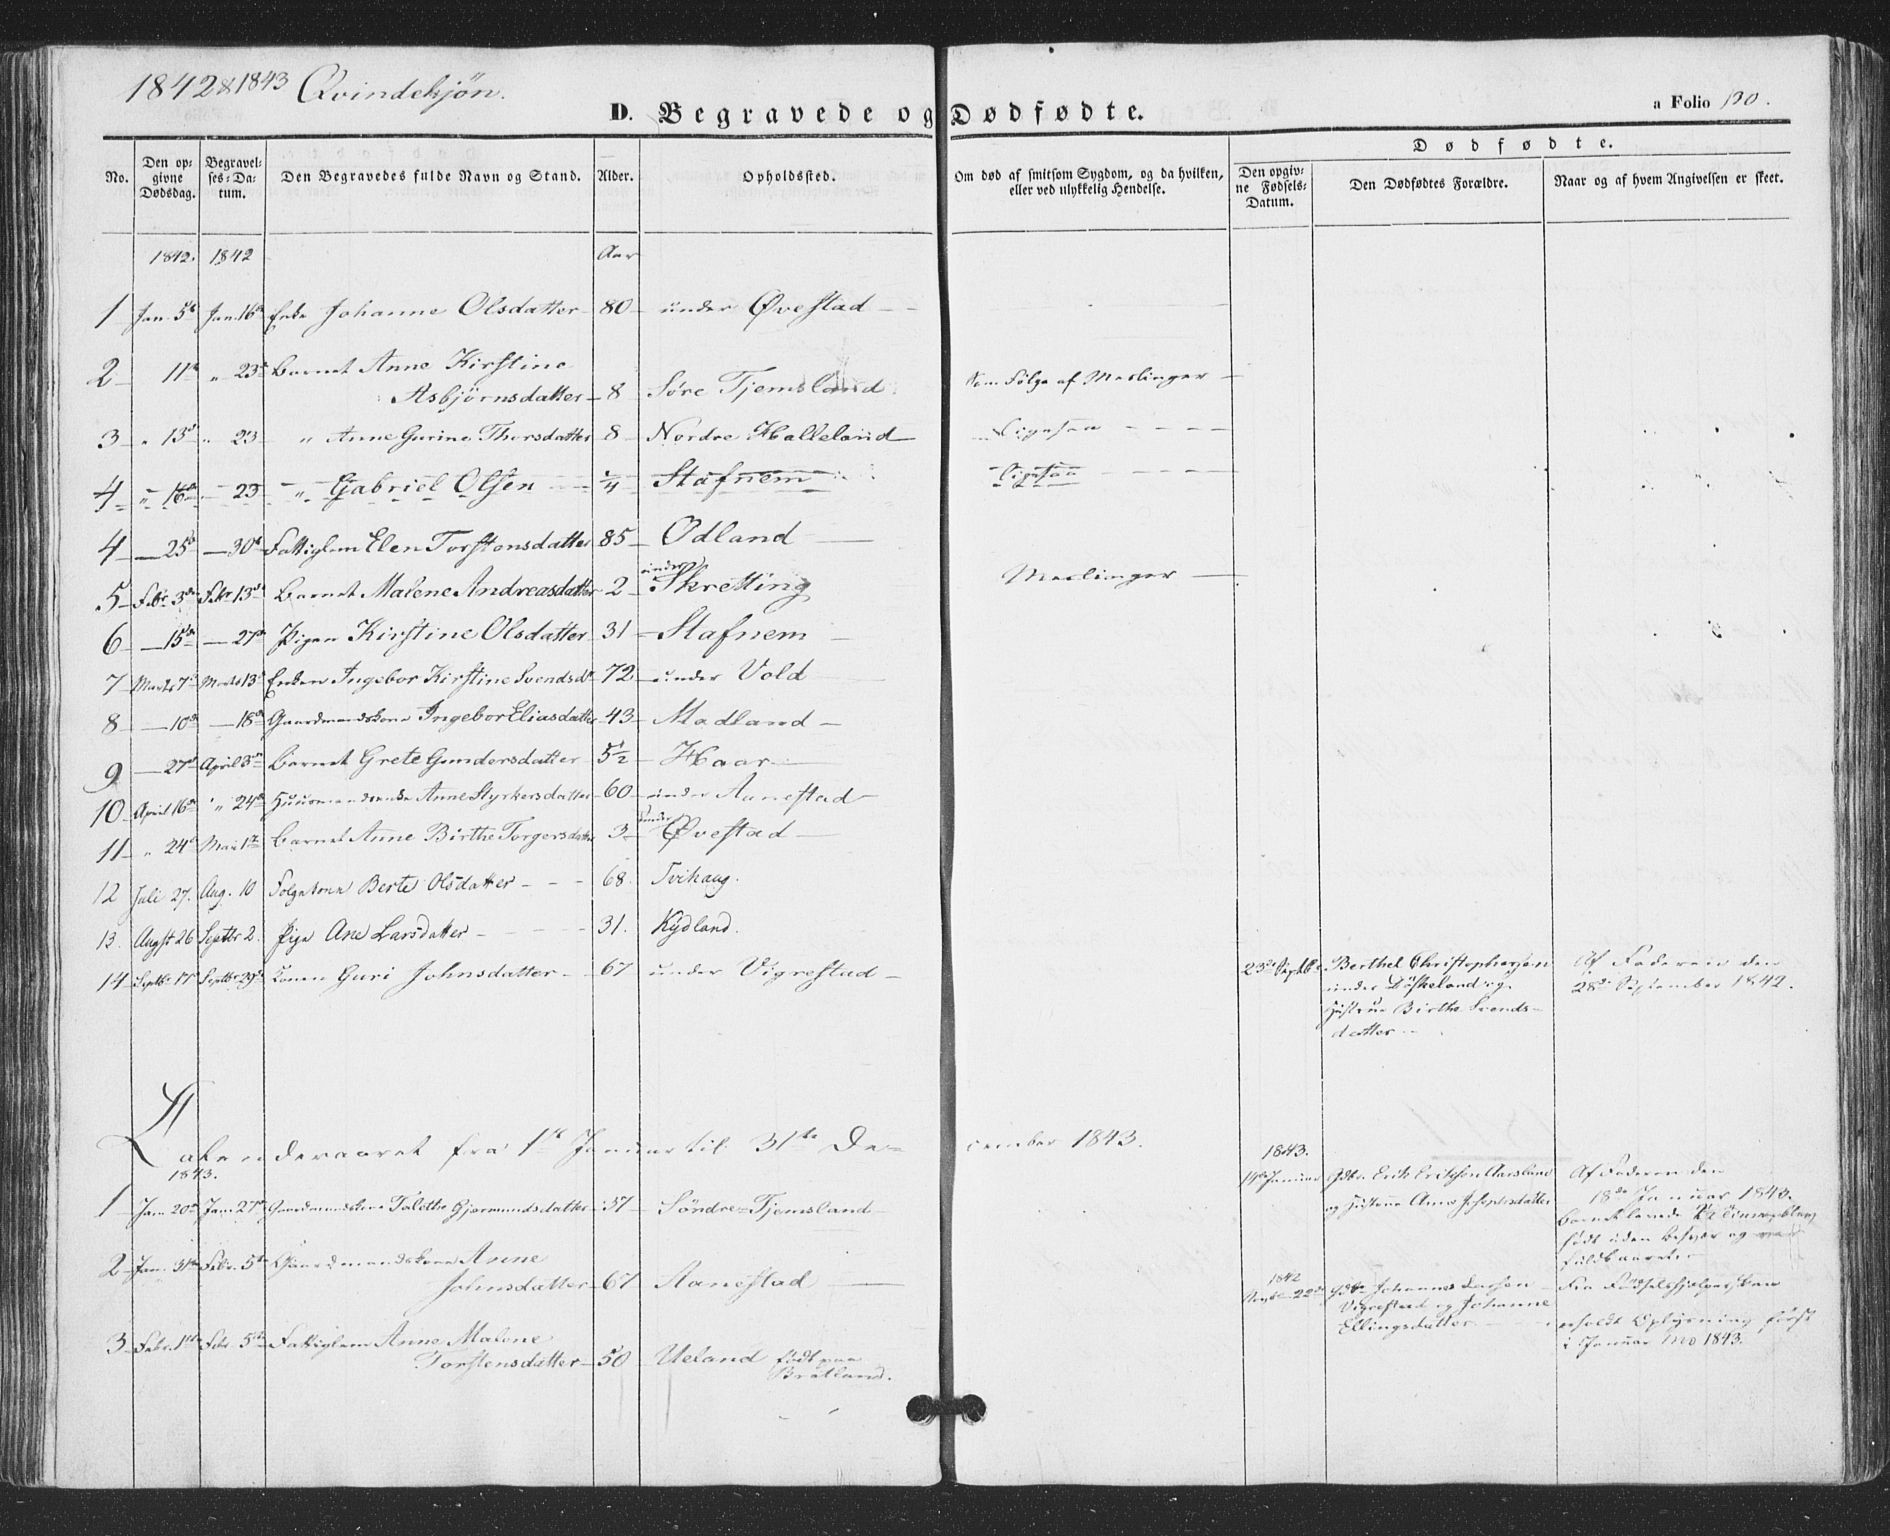 1842 & 1843 Qvindekjøn.
D. Begravede og Dødfødte.
a Folio 130.
No.
Den op-
givne
Dødsdag.
Begravel-
ses-Da-
tum.
Den Begravedes fulde Navn og Stand.
Alder.
Opholdssted.
Om død af smitsom Sygdom, og da hvilken,
eller ved ulykkelig Hendelse.
Dødfødte.
Den opgiv-
ne Fødsels-
Datum.
Den Dødfødtes Forældre.
Naar og af hvem Angivelsen er skeet.
1842. 1842 Aar
1 Jan. 5te Jan. 16de Enke Johanne Olsdatter 80 under Øvestad
2 11te " 23de Barnet Anne Kirstine
Asbjørnsdatter 8 Søre Tjemsland Som Følge af Meslinger
3 " 13de " 23 " Anne Gurine Thorsdatter 8 Nordre Halleland Ligesaa
4 " 16de 23 " Gabriel Olsen 1/4 Stafnem Ligesaa
4 25de 30te Fattiglem Elen Torstensdatter 85 Ødland
5 Febr. 3die Febr. 13de Barnet Malene Andreasdatter 2 under Skretting Meslinger
6 15de 27de Pigen Kirstine Olsdatter 31 Stafnem
7 Marts 7de Marts 13de Enken Ingebor Kirstine Svendsdr 72 under Vold
8 10de 18de Gaardmandskone Ingebor Eliasdatter 43 Madland
9 27de April 3die Barnet Grete Gundersdatter 5 1/2 Haar
10 April 16de " 24de Huusmandsenke Anne Styrkersdatter 60 under Aanestad
11 " 24de Mai 1ste Barnet Anne Birthe Torgersdatter 3 under Øvestad
12 Juli 27. Aug. 10 Folgekone Berte Olsdatter 68. Tvihaug.
13. Augst 26 Septbr 2. Pige Ane Larsdatter 31. Kydland.
14 Septbr 17de Septbr 29de Konen Guri Johnsdatter 67 under Vigrestad
23de Septbr Berthel Christophersen
under Høskeland og
Hustrue Birthe Svends-
datter
Af Faderen den
28de September 1842.
Kalenderaaret fra 1ste Januar til 31te De-
cember 1843.
1843.
1 Jan. 20de Jan. 27de Gaardmandskone Talette Gjermundsdatter 37 Søndre Tjemsland
2 Jan. 31te Febr. 5te Gaardmandskone Anne
Johnsdatter 67 Aanestad
3 Febr. 1ste Febr. 5te Fattiglem Anne Malene
Torstensdatter 50 Ueland født paa
Bratland.
1843.
14de Januar Gdbr. Erik Erichsen Aarsland
og Hustrue Anne Josephsdatter
Af Faderen den
18de Januar 1843.
Barnet levede
født uden Besvær og var
fuldbaaret.
1842
Septbr 22de Gdbr Johannes Larsen
Vigrestad og Johanne
Ellingsdatter
Fra Fødselshjelpersken
erholdt Oplysning først
i Januar Md 1843.